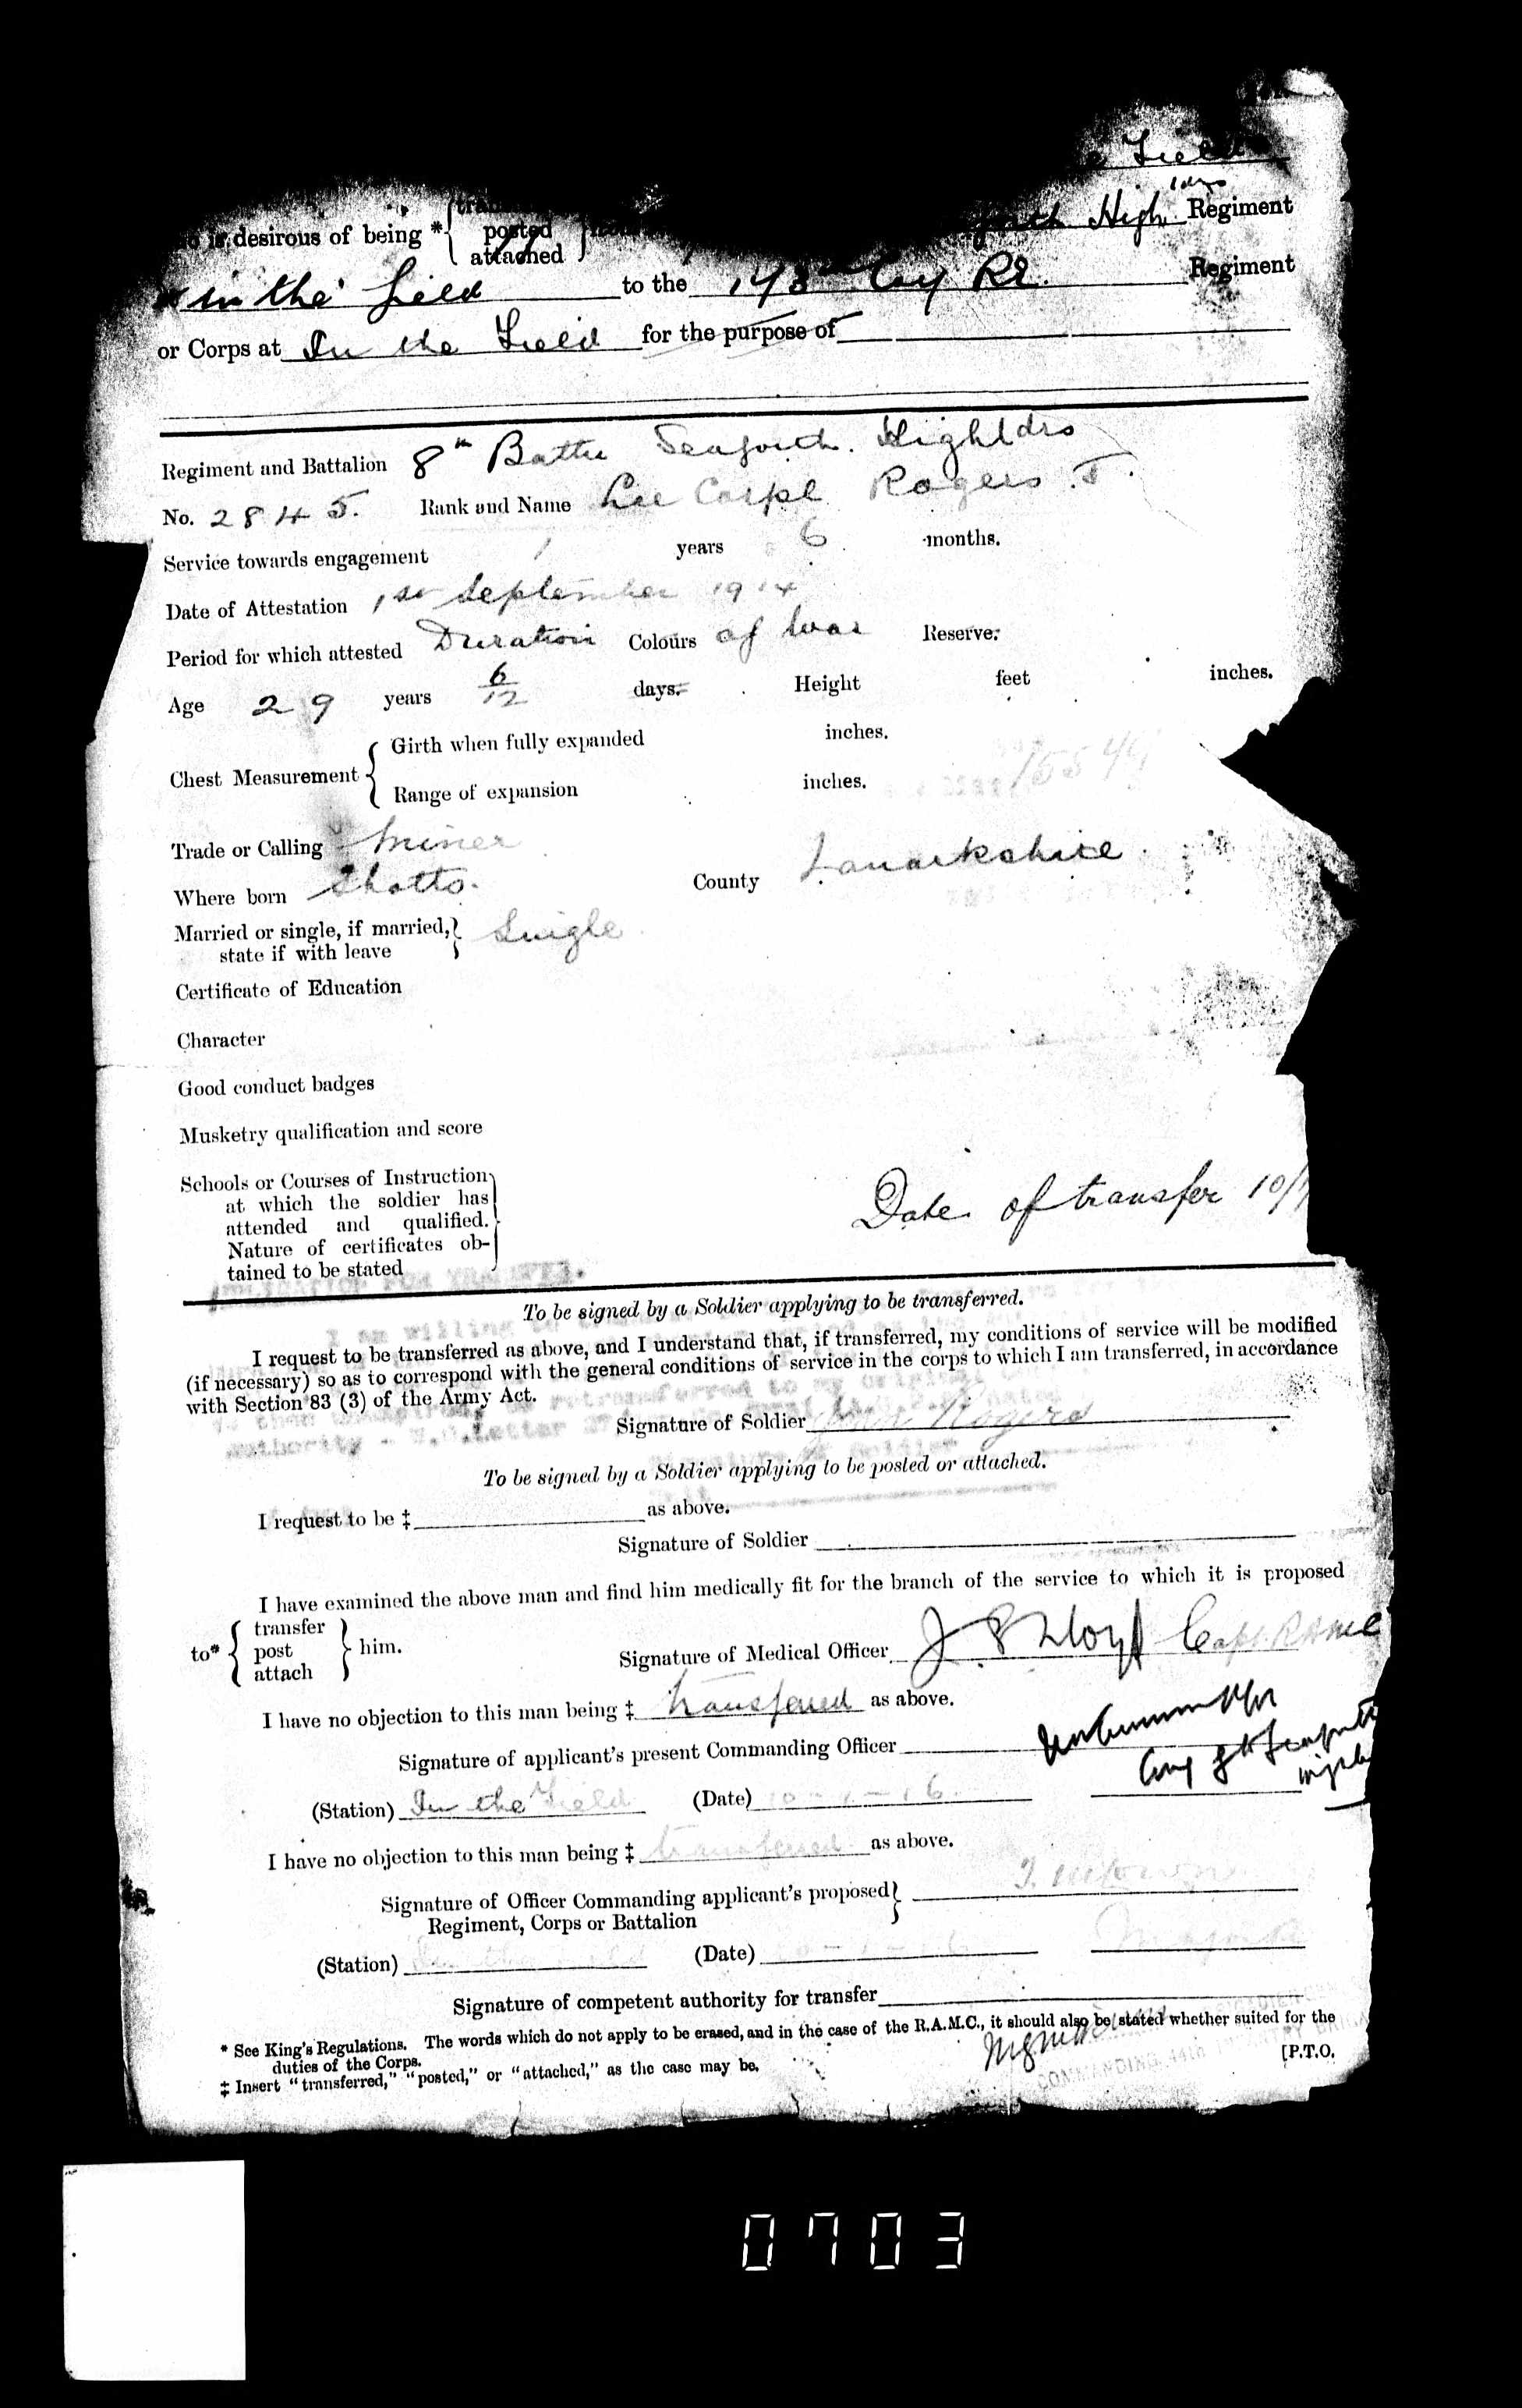 Field
desirous of being * { posted attached } High ldrs Regiment
in the field to the Coy RE. Regiment
or Corps at In the Field for the purpose of
Regiment and Battalion 8th Battn Seaforth Highldrs
No. 2845. Rank and Name Lce Corpl Rogers J.
Service towards engagement 1 years 6 months.
Date of Attestation 1st September 1914
Period for which attested Duration Colours of War Reserve.
Age 29 years 6/12 days. Height feet inches.
Chest Measurement { Girth when fully expanded inches.
Range of expansion inches.
Trade or Calling Miner
Where born Shotts. County Lanarkshire
Married or single, if married, } Single
state if with leave
Certificate of Education
Character
Good conduct badges
Musketry qualification and score
Schools or Courses of Instruction
at which the soldier has
attended and qualified.
Nature of certificates ob-
tained to be stated
Date of transfer 10/
To be signed by a Soldier applying to be transferred.
I request to be transferred as above, and I understand that, if transferred, my conditions of service will be modified
(if necessary) so as to correspond with the general conditions of service in the corps to which I am transferred, in accordance
with Section 83 (3) of the Army Act.
Signature of Soldier John Rogers
To be signed by a Soldier applying to be posted or attached.
I request to be ‡ as above.
Signature of Soldier
I have examined the above man and find him medically fit for the branch of the service to which it is proposed
to* { transfer post attach } him.
Signature of Medical Officer J S Lloyd Capt. RAMC
I have no objection to this man being ‡ transferred as above.
Signature of applicant's present Commanding Officer
(Station) In the Field (Date) 10-1-16
I have no objection to this man being ‡ transferred as above.
Signature of Officer Commanding applicant's proposed }
Regiment, Corps or Battalion
(Station) (Date)
Signature of competent authority for transfer
* See King's Regulations. The words which do not apply to be erased, and in the case of the R.A.M.C., it should also be stated whether suited for the
duties of the Corps.
‡ Insert "transferred," "posted," or "attached," as the case may be.
[P.T.O.
COMMANDING 44th
0703